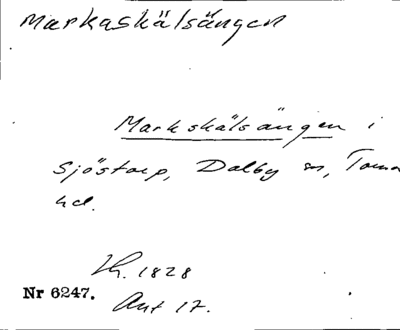 Markaskälsängen
Markskälsängen i
Sjöstorp, Dalby sn, Torna
hd.
Lh. 1828
Nr 6247. Ant 17.